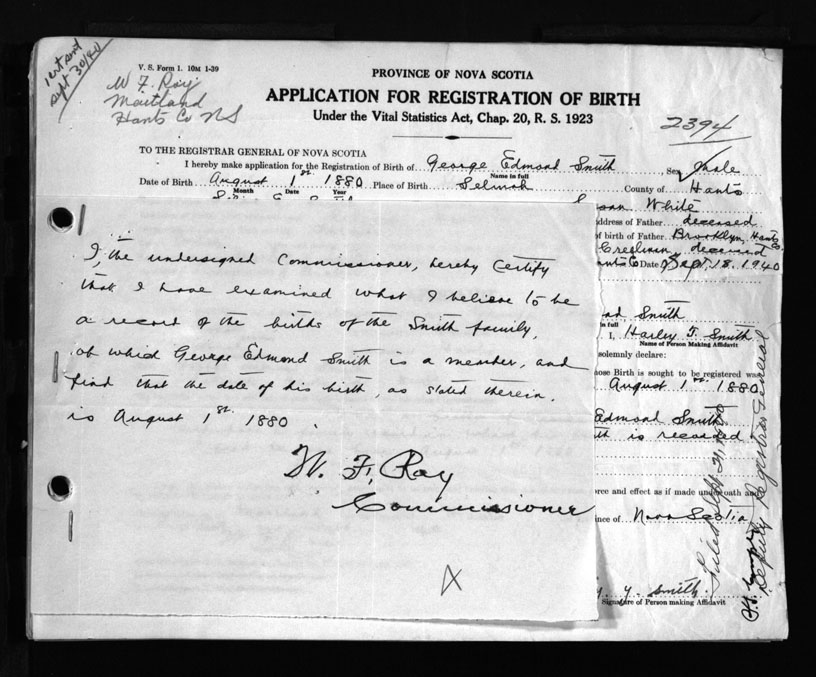 1 cert sent
Sept 30/40
V. S. Form 1. 10M 1-39
W F. Roy
Maitland
Hants Co NS
PROVINCE OF NOVA SCOTIA
APPLICATION FOR REGISTRATION OF BIRTH
Under the Vital Statistics Act, Chap. 20, R. S. 1923
2394
TO THE REGISTRAR GENERAL OF NOVA SCOTIA
I hereby make application for the Registration of Birth of George Edmond Smith Sex Male
Name in full
Date of Birth August 1st 1880 Place of Birth Selmah County of Hants
Month Date Year
Susan White
ddress of Father deceased
f birth of Father Brooklyn, Hants Co
Creelman, deceased
Hants Co Date Sept. 18, 1940
nd Smith
in full
I, Harley F. Smith
Name of Person Making Affidavit
solemnly declare:
hose Birth is sought to be registered was
August 1st 1880
Edmond Smith
th is recorded
orce and effect as if made under oath and
ince of Nova Scotia
y. Smith
Signature of Person making Affidavit
Filed Sept 21, 1940
Deputy Registrar General
I, the undersigned Commissioner, hereby certify
that I have examined what I believe to be
a record of the births of the Smith family,
of which George Edmond Smith is a member, and
find that the date of his birth, as stated therein,
is August 1st 1880.
W. F. Roy
Commissioner